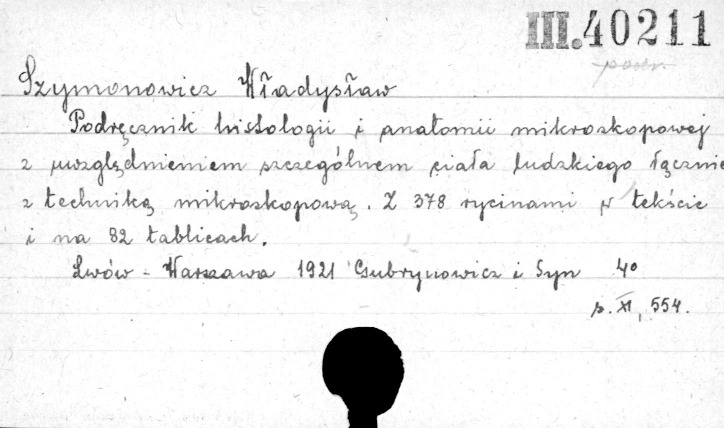 III.40211
podr
Szymonowicz Władysław
Podręcznik histologii i anatomii mikroskopowej
z uwzględnieniem szczególnem ciała ludzkiego łącznie
z techniką mikroskopową. Z 378 rycinami w tekście
i na 82 tablicach.
Lwów - Warszawa 1921 Gubrynowicz i Syn 4°
s. XI, 554.